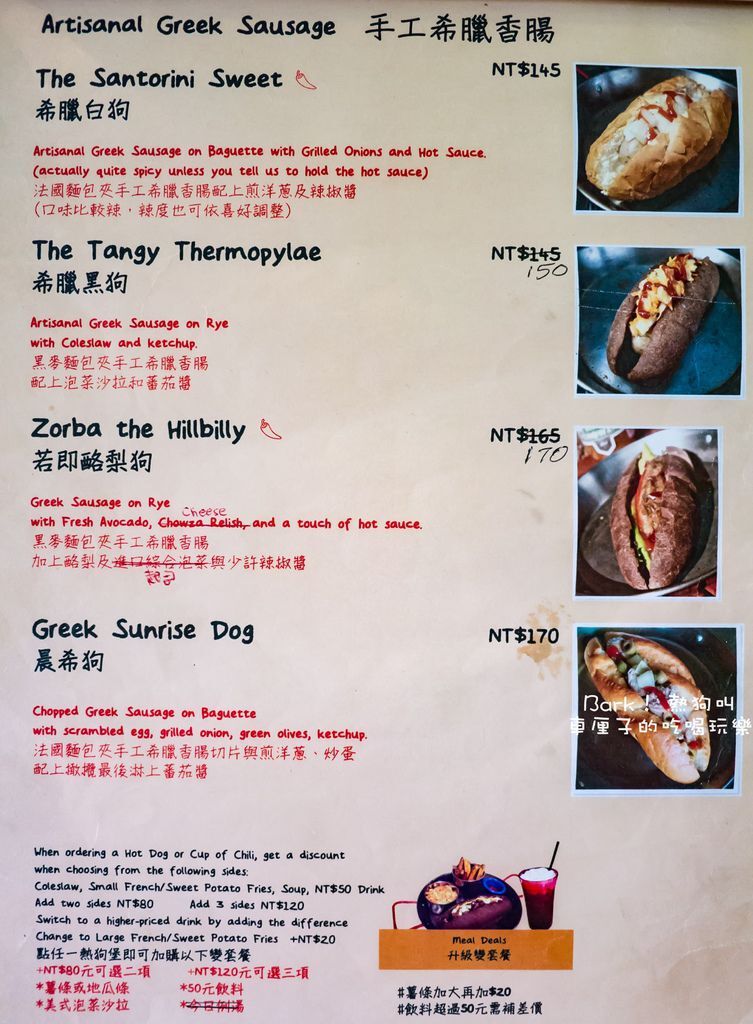 Artisanal Greek Sausage 手工希臘香腸
The Santorini Sweet NT$145
希臘白狗
Artisanal Greek Sausage on Baguette with Grilled Onions and Hot Sauce.
(actually quite spicy unless you tell us to hold the hot sauce)
法國麵包夾手工希臘香腸配上煎洋蔥及辣椒醬
(口味比較辣，辣度也可依喜好調整)
The Tangy Thermopylae NT$145
150
希臘黑狗
Artisanal Greek Sausage on Rye
with Coleslaw and ketchup.
黑麥麵包夾手工希臘香腸
配上泡菜沙拉和蕃茄醬
Zorba the Hillbilly NT$165
170
若即酪梨狗
Greek Sausage on Rye
Cheese
with Fresh Avocado, Chowza Relish, and a touch of hot sauce.
黑麥麵包夾手工希臘香腸
加上酪梨及進口綜合泡菜與少許辣椒醬
起司
Greek Sunrise Dog NT$170
晨希狗
Chopped Greek Sausage on Baguette
with scrambled egg, grilled onion, green olives, ketchup.
法國麵包夾手工希臘香腸切片與煎洋蔥、炒蛋
配上橄欖最後淋上蕃茄醬
Bark！熱狗叫
車厘子的吃喝玩樂
When ordering a Hot Dog or Cup of Chili, get a discount
when choosing from the following sides:
Coleslaw, Small French/Sweet Potato Fries, Soup, NT$50 Drink
Add two sides NT$80 Add 3 sides NT$120
Switch to a higher-priced drink by adding the difference
Change to Large French/Sweet Potato Fries +NT$20
點任一熱狗堡即可加購以下變套餐
+NT$80元可選二項 +NT$120元可選三項
*薯條或地瓜條 *50元飲料
*美式泡菜沙拉 *今日例湯
Meal Deals
升級變套餐
#薯條加大再加$20
#飲料超過50元需補差價